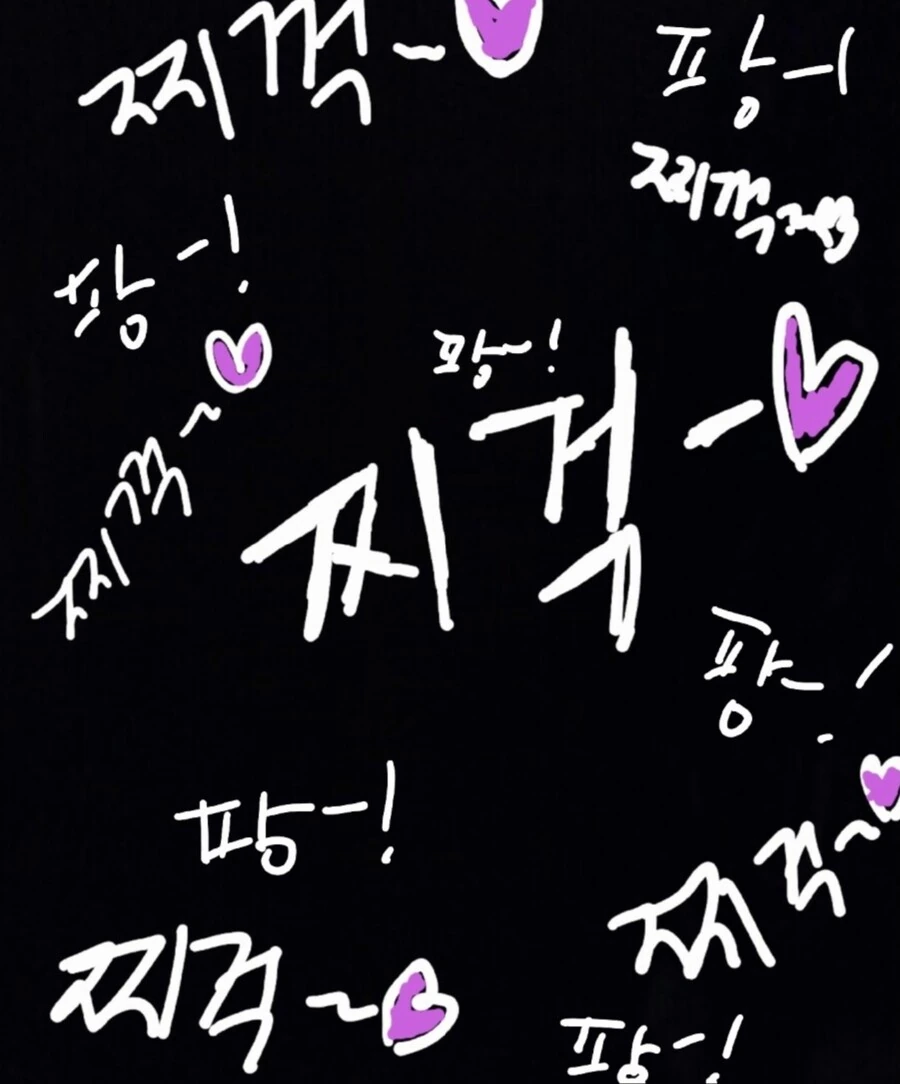 찌꺽~
팡-!
찌꺽~
팡-!
팡~!
찌꺽~
찌걱-
팡-!
팡-!
찌걱~
찌걱~
팡-!